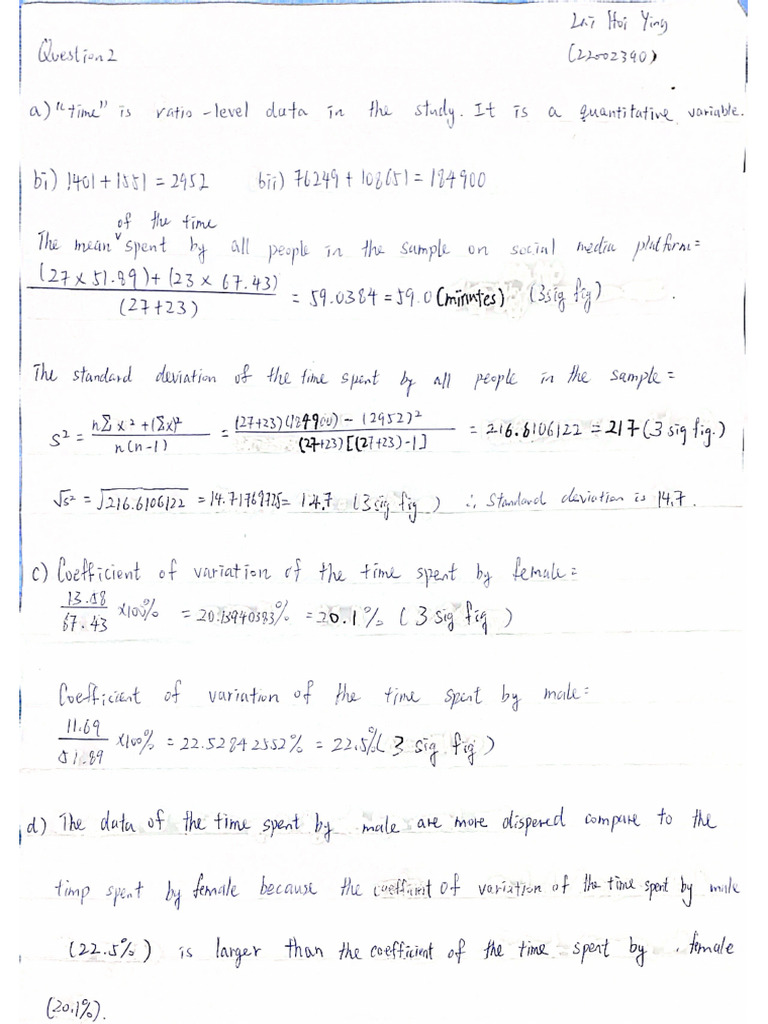 Lai Hoi Ying
Question 2 (22002390)
a) "time" is ratio-level data in the study. It is a quantitative variable.
bi) 1401 + 1551 = 2952 bii) 76249 + 108651 = 184900
of the time
The mean ˅ spent by all people in the sample on social media platform =
(27 × 51.89) + (23 × 67.43)
/ (27+23) = 59.0384 = 59.0 (minutes) (3 sig fig)
The standard deviation of the time spent by all people in the sample =
S² = n Σ x² + (Σx)² / n(n-1) = (27+23)(184900) - (2952)² / (27+23)[(27+23)-1] = 216.6106122 = 217 (3 sig fig.)
√s² = √216.6106122 = 14.71769725 = 14.7 (3 sig fig) ∴ Standard deviation is 14.7.
c) Coefficient of variation of the time spent by female =
13.58 / 67.43 ×100% = 20.13940383% = 20.1% (3 sig fig)
Coefficient of variation of the time spent by male =
11.69 / 51.89 ×100% = 22.52842552% = 22.5% (3 sig fig)
d) The data of the time spent by male are more dispered compare to the
timp spent by female because the coefficient of variation of the time spent by male
(22.5%) is larger than the coefficient of the time spent by female
(20.1%).